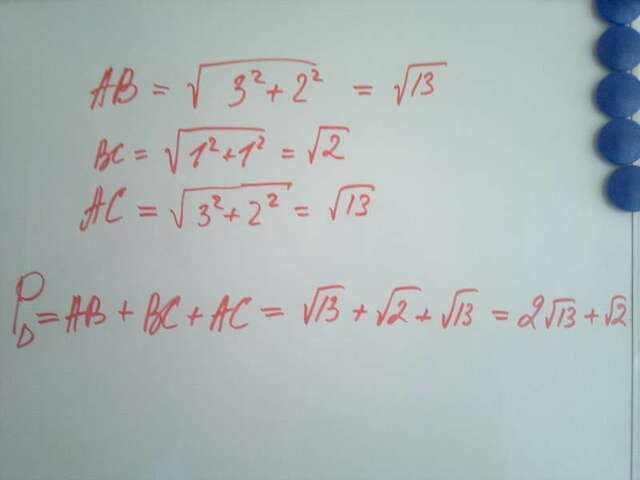 AB = √(3² + 2²) = √13
BC = √(1² + 1²) = √2
AC = √(3² + 2²) = √13
P△ = AB + BC + AC = √13 + √2 + √13 = 2√13 + √2